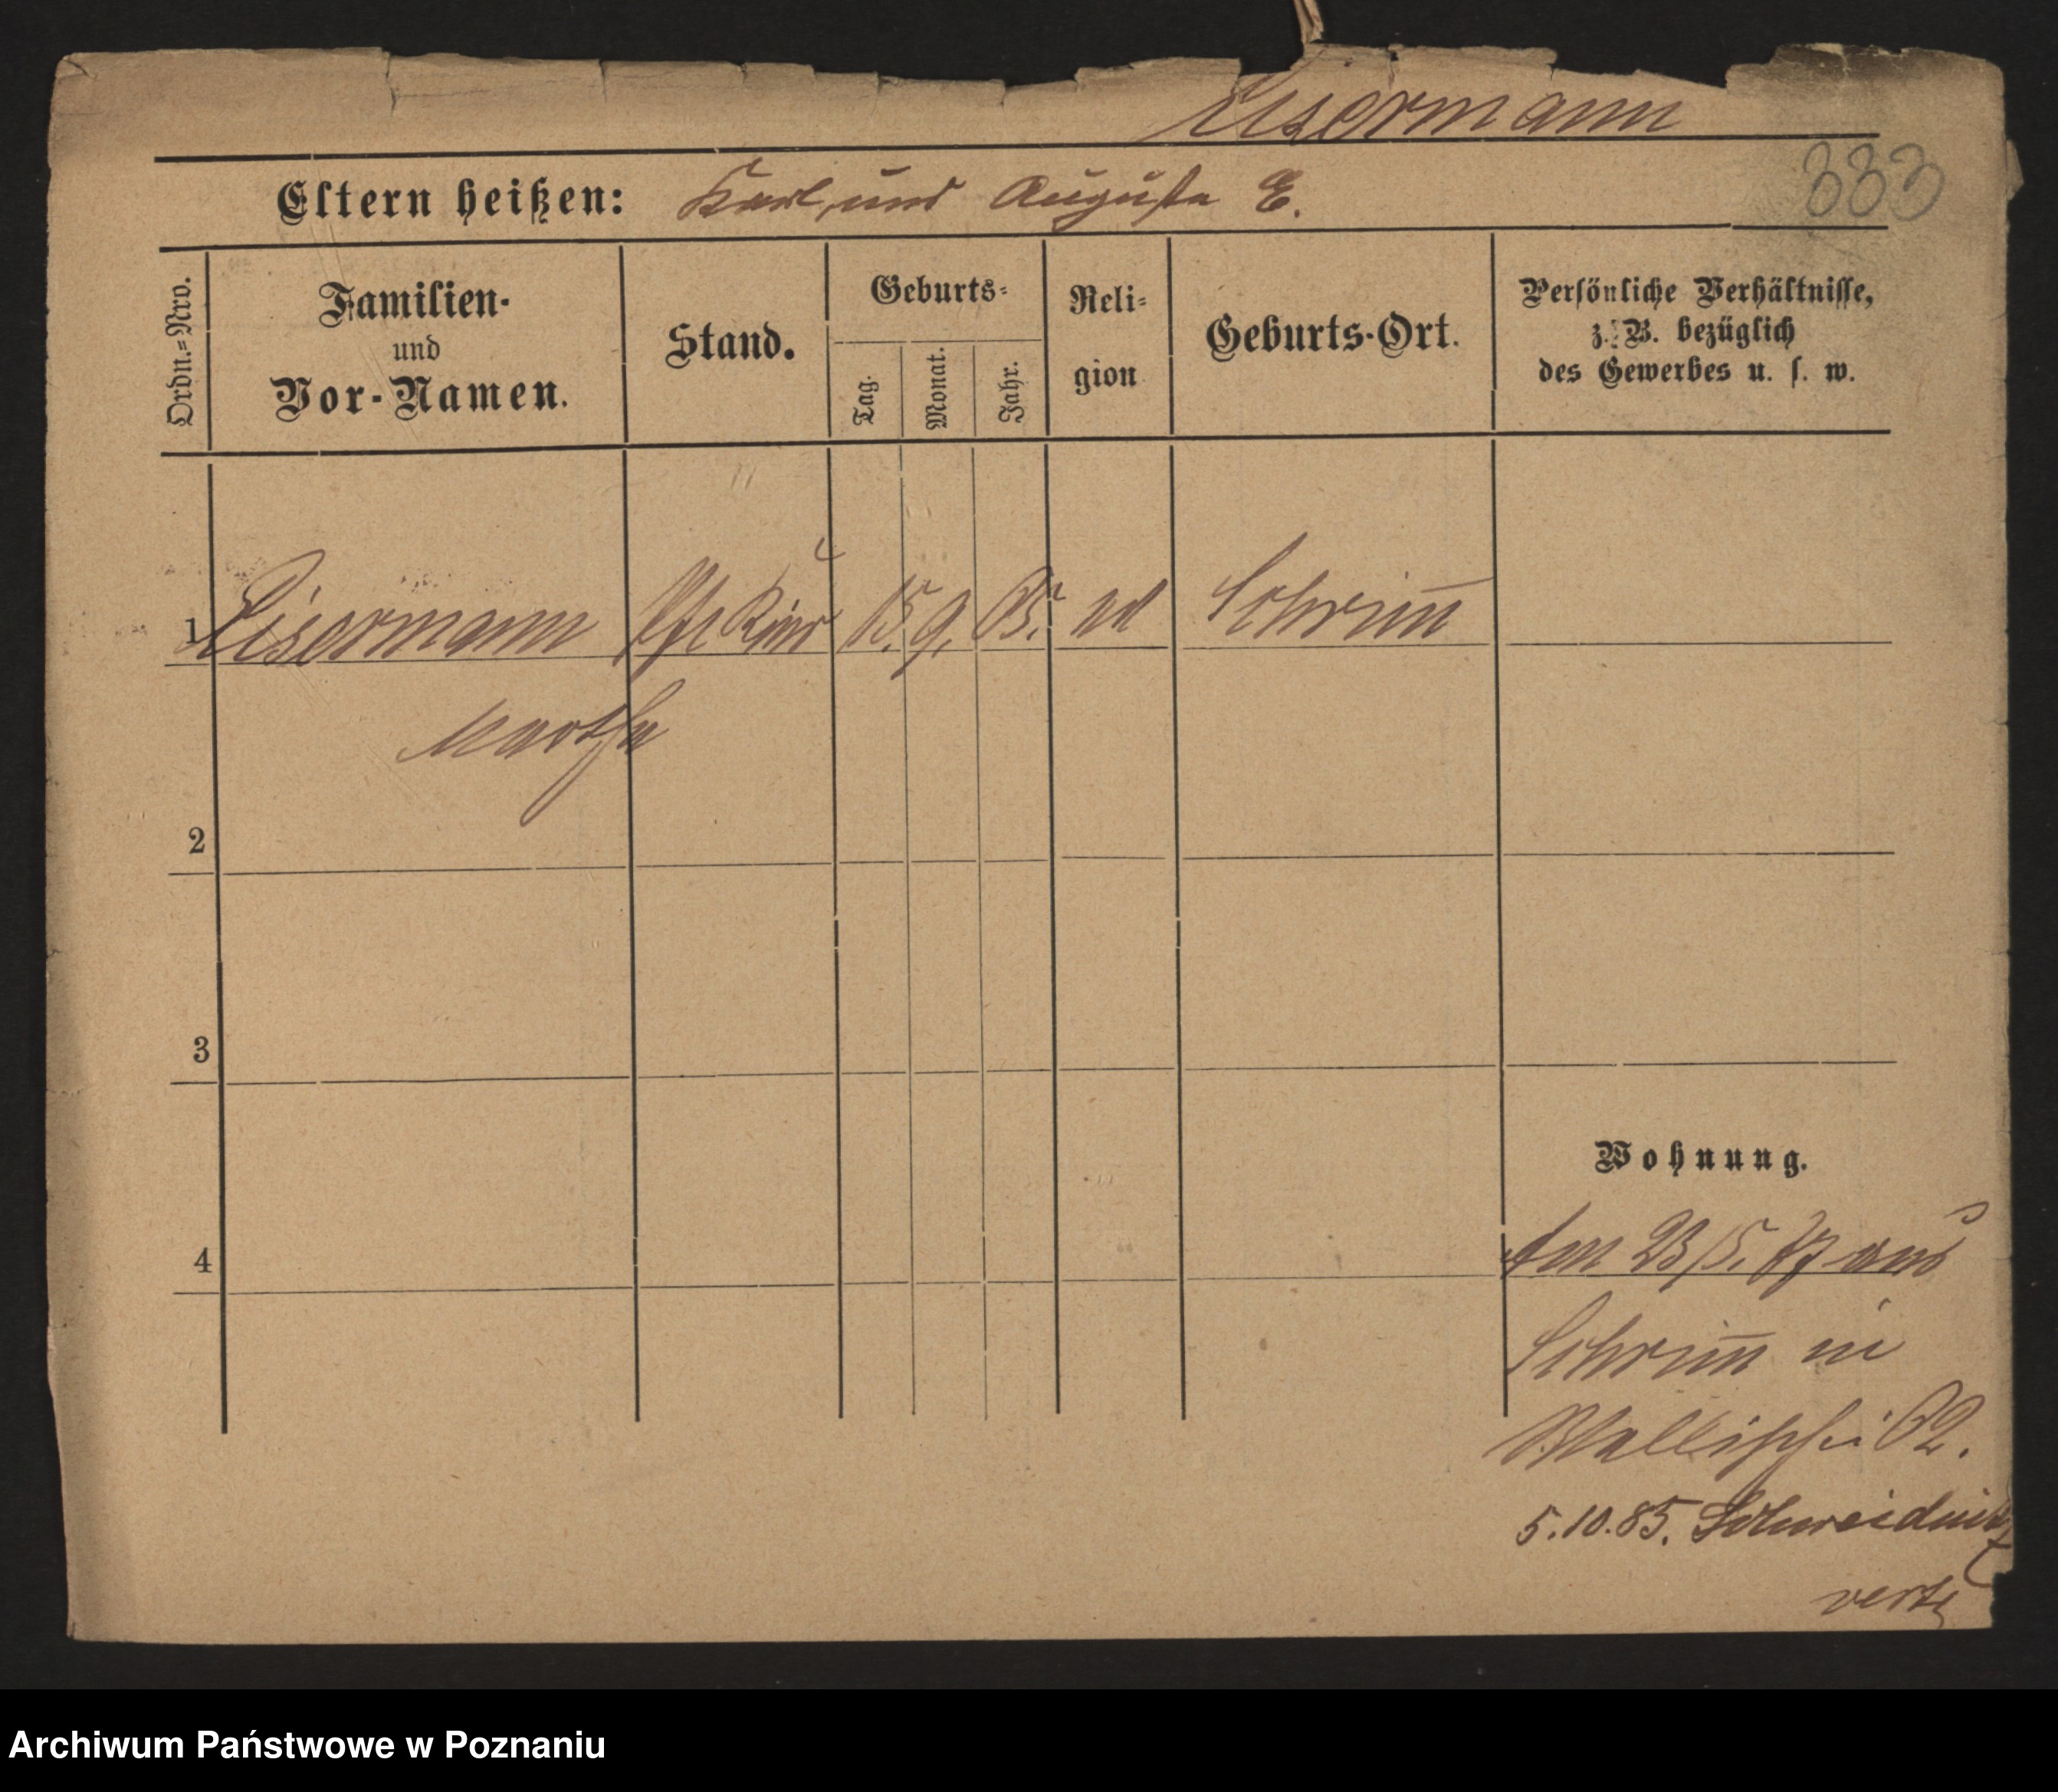 Eisermann
333
Eltern heißen: Karl und Auguste E.
Ordn.=Nro.
Familien-
und
Vor-Namen.
Stand.
Geburts=
Tag.
Monat.
Jahr.
Reli=
gion
Geburts-Ort.
Persönliche Verhältnisse,
z. B. bezüglich
des Gewerbes u. s. w.
1 Eisermann 15. 9. 65. Schrim̄
Martha
2
3
4
Wohnung.
Am 23/5. aus
Schrim̄ in
Wallischei 62.
5.10.85. Schweidnitz
verte
Archiwum Państwowe w Poznaniu